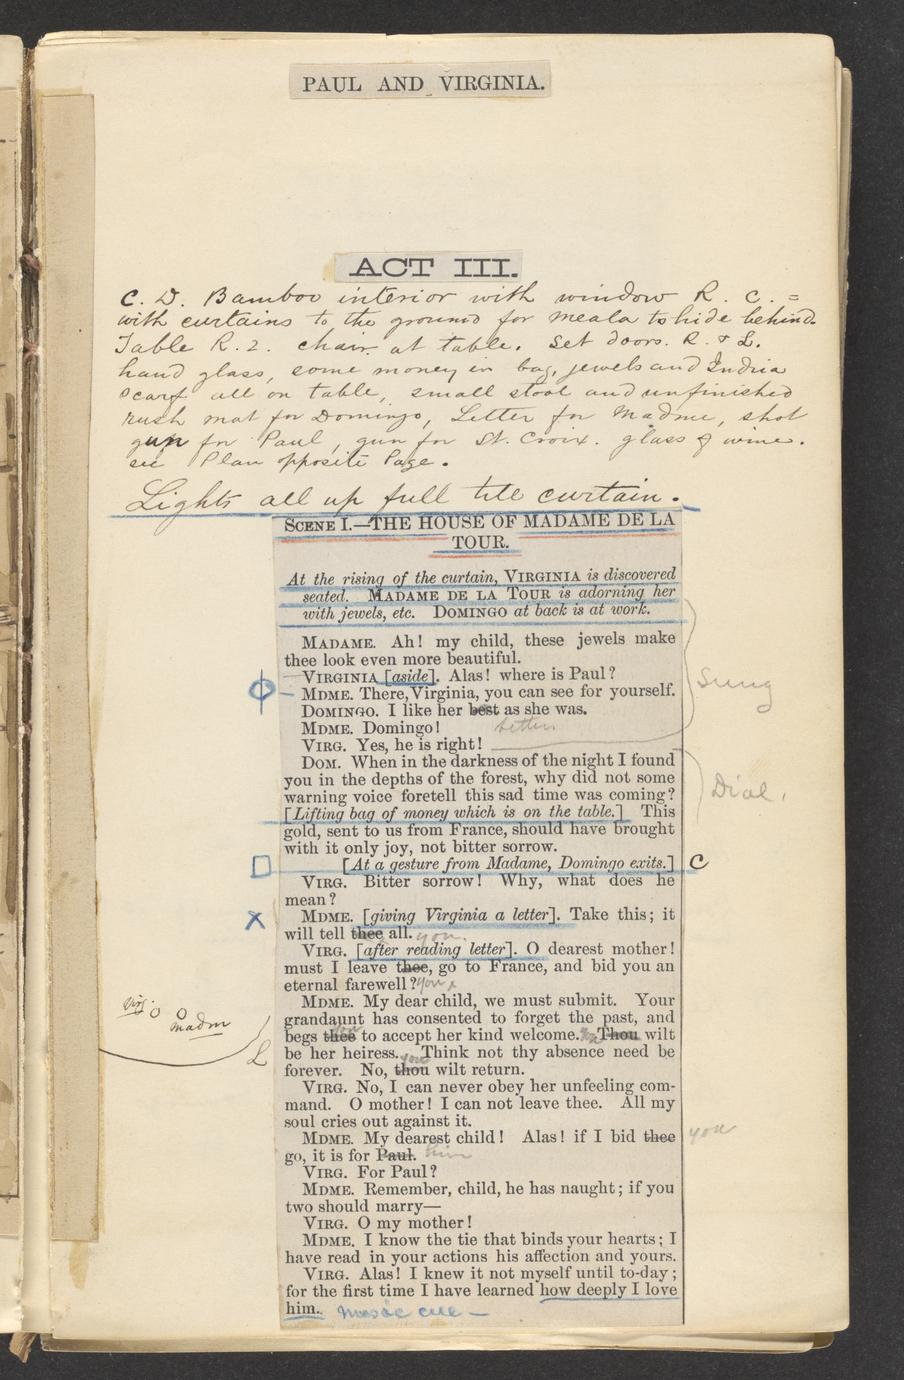 PAUL AND VIRGINIA.
ACT III.
C. D. Bamboo interior with window R. C. =
with curtains to the ground for Meala to hide behind.
Table R. 2. chair at table. Set doors. R. & L.
hand glass, some money in bag, jewels and India
scarf all on table, small stool and unfinished
rush mat for Domingo, Letter for Madme, shot
gun for Paul, gun for St. Croix. glass of wine.
see Plan opposite Page.
Lights all up full till curtain.
SCENE I.—THE HOUSE OF MADAME DE LA
TOUR.
At the rising of the curtain, VIRGINIA is discovered
seated. MADAME DE LA TOUR is adorning her
with jewels, etc. DOMINGO at back is at work.
MADAME. Ah! my child, these jewels make
thee look even more beautiful.
VIRGINIA [aside]. Alas! where is Paul?
Sung
MDME. There, Virginia, you can see for yourself.
DOMINGO. I like her best as she was.
MDME. Domingo! better
VIRG. Yes, he is right!
DOM. When in the darkness of the night I found
you in the depths of the forest, why did not some
Dial.
warning voice foretell this sad time was coming?
[Lifting bag of money which is on the table.] This
gold, sent to us from France, should have brought
with it only joy, not bitter sorrow.
[At a gesture from Madame, Domingo exits.] C
VIRG. Bitter sorrow! Why, what does he
mean?
X MDME. [giving Virginia a letter]. Take this; it
will tell thee all. you.
VIRG. [after reading letter]. O dearest mother!
must I leave thee, go to France, and bid you an
eternal farewell? you
MDME. My dear child, we must submit. Your
Vir. O O
Madm
L
grandaunt has consented to forget the past, and
begs thee you to accept her kind welcome. Thou wilt
be her heiress. Think not thy absence need be
forever. No, thou you wilt return.
VIRG. No, I can never obey her unfeeling com-
mand. O mother! I can not leave thee. All my
soul cries out against it.
MDME. My dearest child! Alas! if I bid thee you
go, it is for Paul. him
VIRG. For Paul?
MDME. Remember, child, he has naught; if you
two should marry—
VIRG. O my mother!
MDME. I know the tie that binds your hearts; I
have read in your actions his affection and yours.
VIRG. Alas! I knew it not myself until to-day;
for the first time I have learned how deeply I love
him. Music cue —